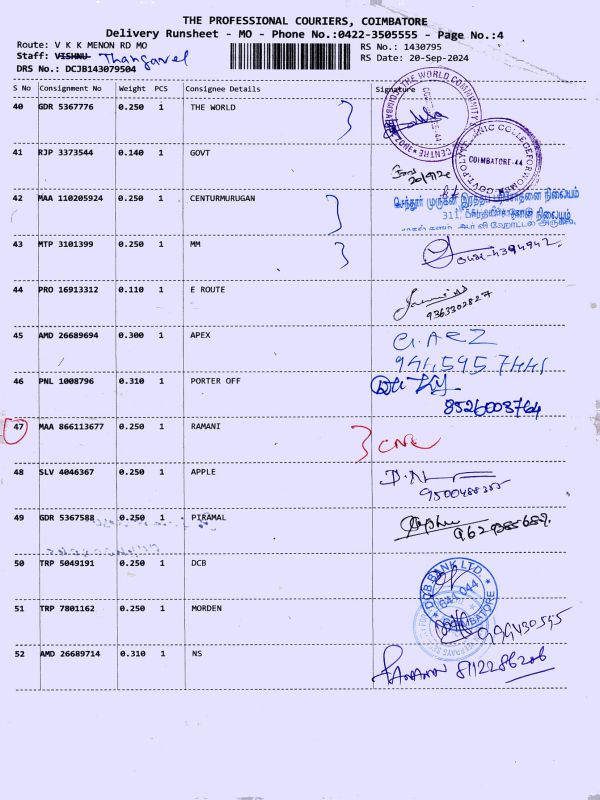 THE PROFESSIONAL COURIERS, COIMBATORE
Delivery Runsheet - MO - Phone No.:0422-3505555 - Page No.:4
Route: V K K MENON RD MO
RS No.: 1430795
Staff: VISHNU Thangavel
RS Date: 20-Sep-2024
DRS No.: DCJB143079504
S No Consignment No Weight PCS Consignee Details Signature
40 GDR 5367776 0.250 1 THE WORLD
41 RJP 3373544 0.140 1 GOVT
COIMBATORE-44
42 MAA 110205924 0.250 1 CENTURMURUGAN
43 MTP 3101399 0.250 1 MM
44 PRO 16913312 0.110 1 E ROUTE
9363302827
45 AMD 26689694 0.300 1 APEX
46 PNL 1008796 0.310 1 PORTER OFF
8526008764
47 MAA 866113677 0.250 1 RAMANI
48 SLV 4046367 0.250 1 APPLE
49 GDR 5367588 0.250 1 PIRAMAL
50 TRP 5049191 0.250 1 DCB
DCB BANK LTD.
641 044
COIMBATORE
51 TRP 7801162 0.250 1 MORDEN
52 AMD 26689714 0.310 1 NS
8112286206